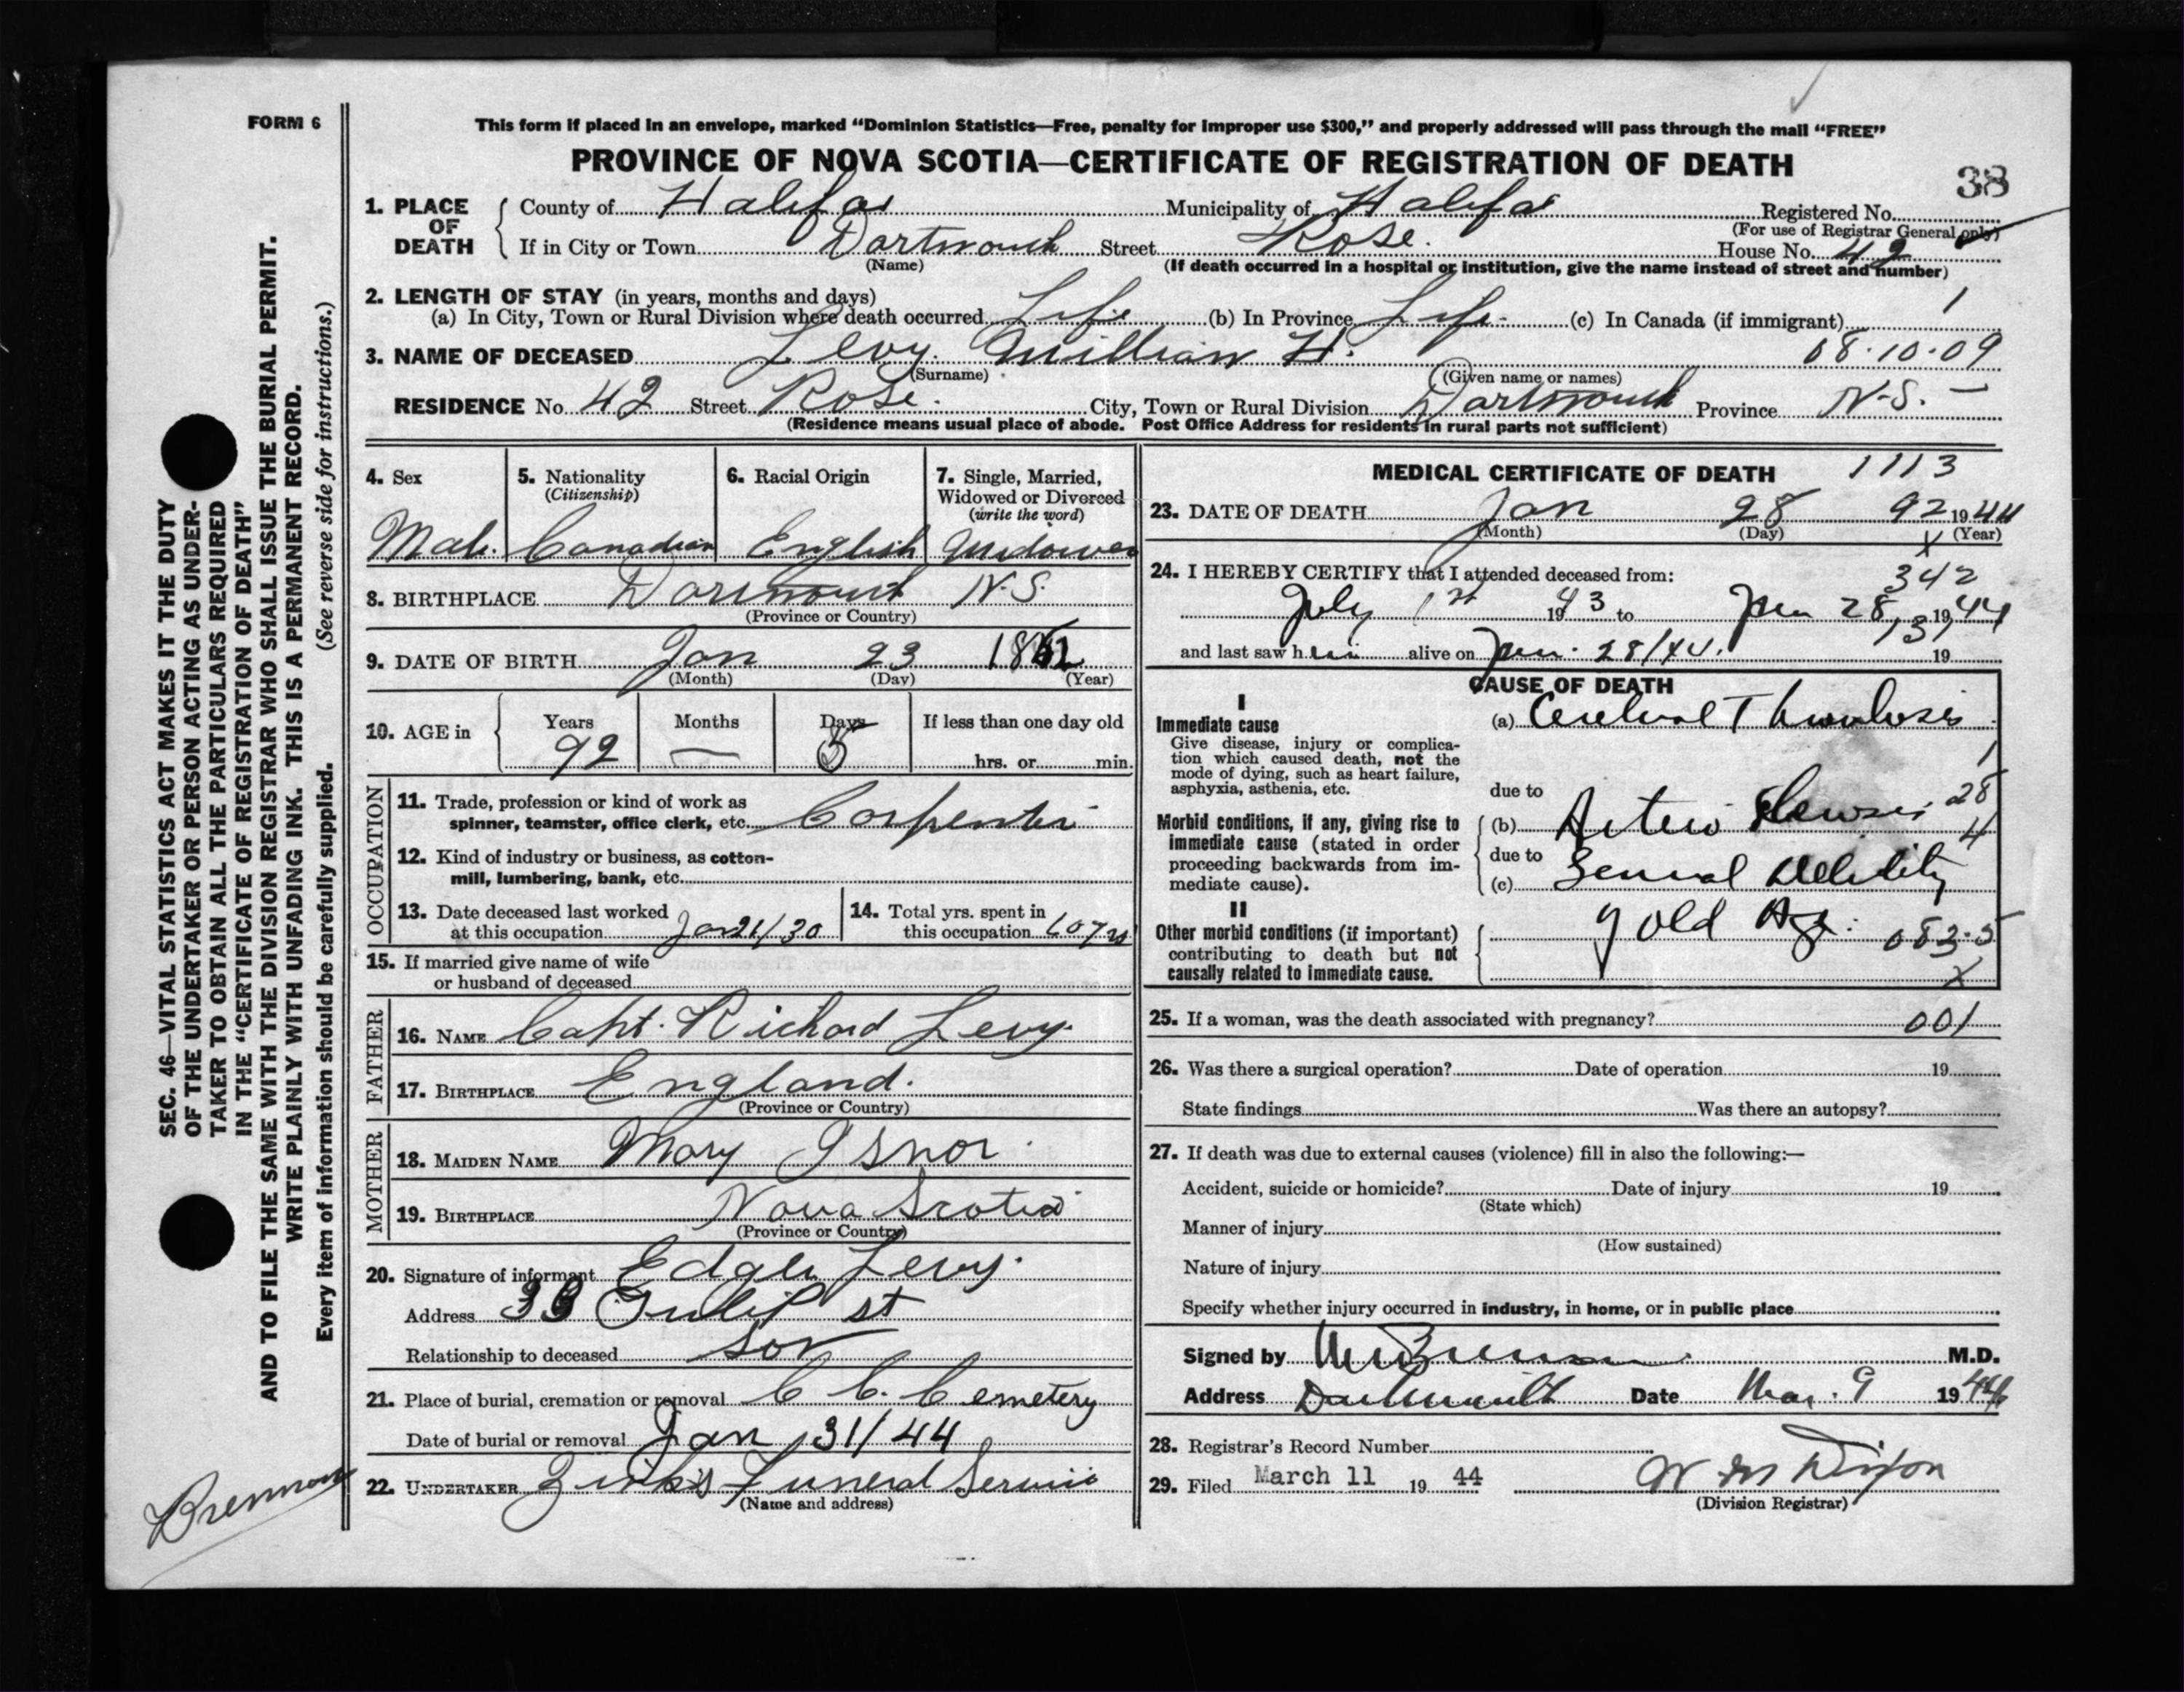 FORM 6
This form if placed in an envelope, marked “Dominion Statistics—Free, penalty for improper use $300,” and properly addressed will pass through the mail “FREE”
PROVINCE OF NOVA SCOTIA—CERTIFICATE OF REGISTRATION OF DEATH
38
1. PLACE OF DEATH { County of Halifax Municipality of Halifax Registered No.
(For use of Registrar General only)
If in City or Town Dartmouth Street Rose. House No. 42
(Name) (If death occurred in a hospital or institution, give the name instead of street and number)
2. LENGTH OF STAY (in years, months and days)
(a) In City, Town or Rural Division where death occurred Life (b) In Province Life (c) In Canada (if immigrant) 1
3. NAME OF DECEASED Levy. William H. 08·10·09
(Surname) (Given name or names)
RESIDENCE No. 42 Street Rose. City, Town or Rural Division Dartmouth Province N.S. —
(Residence means usual place of abode. Post Office Address for residents in rural parts not sufficient)
4. Sex 5. Nationality (Citizenship) 6. Racial Origin 7. Single, Married, Widowed or Divorced (write the word)
Male. Canadian English Widower
8. BIRTHPLACE Dartmouth N.S.
(Province or Country)
9. DATE OF BIRTH Jan 23
(Month) (Day) (Year)
10. AGE in { Years Months Days If less than one day old
92 — 5 hrs. or min.
OCCUPATION
11. Trade, profession or kind of work as
spinner, teamster, office clerk, etc. Carpenter
12. Kind of industry or business, as cotton-
mill, lumbering, bank, etc.
13. Date deceased last worked
at this occupation Jan 21/30
14. Total yrs. spent in
this occupation 60 yrs
15. If married give name of wife
or husband of deceased
FATHER
16. NAME Capt. Richard Levy.
17. BIRTHPLACE England.
(Province or Country)
MOTHER
18. MAIDEN NAME Mary Isnor.
19. BIRTHPLACE Nova Scotia
(Province or Country)
20. Signature of informant Edgar Levy.
Address Tulip st
Relationship to deceased son
21. Place of burial, cremation or removal C C. Cemetery
Date of burial or removal Jan 31/44
22. UNDERTAKER Zink's Funeral Service
(Name and address)
MEDICAL CERTIFICATE OF DEATH 1113
23. DATE OF DEATH Jan 28 92 1944
(Month) (Day) X (Year)
24. I HEREBY CERTIFY that I attended deceased from: 342
July 1st 1943 to Jan 28, 1944
131
and last saw him alive on Jan. 28/44. 19
CAUSE OF DEATH
I
Immediate cause (a) Cerebral Thrombosis
Give disease, injury or complica-
tion which caused death, not the
mode of dying, such as heart failure,
asphyxia, asthenia, etc.
1
28
4
due to
Morbid conditions, if any, giving rise to
immediate cause (stated in order
proceeding backwards from im-
mediate cause).
(b) Arterio Sclerosis
due to
(c) General debility
II
Other morbid conditions (if important)
contributing to death but not
causally related to immediate cause.
old Age. 083·5
X
25. If a woman, was the death associated with pregnancy? 001
26. Was there a surgical operation? Date of operation 19
State findings Was there an autopsy?
27. If death was due to external causes (violence) fill in also the following:—
Accident, suicide or homicide? Date of injury 19
(State which)
Manner of injury
(How sustained)
Nature of injury
Specify whether injury occurred in industry, in home, or in public place
Signed by M.D.
Address Dartmouth Date Mar. 9 1944
28. Registrar's Record Number
29. Filed March 11 19 44 W M Dixon
(Division Registrar)
SEC. 46—VITAL STATISTICS ACT MAKES IT THE DUTY
OF THE UNDERTAKER OR PERSON ACTING AS UNDER-
TAKER TO OBTAIN ALL THE PARTICULARS REQUIRED
IN THE “CERTIFICATE OF REGISTRATION OF DEATH”
AND TO FILE THE SAME WITH THE DIVISION REGISTRAR WHO SHALL ISSUE THE BURIAL PERMIT.
WRITE PLAINLY WITH UNFADING INK. THIS IS A PERMANENT RECORD.
Every item of information should be carefully supplied. (See reverse side for instructions.)
Brennan